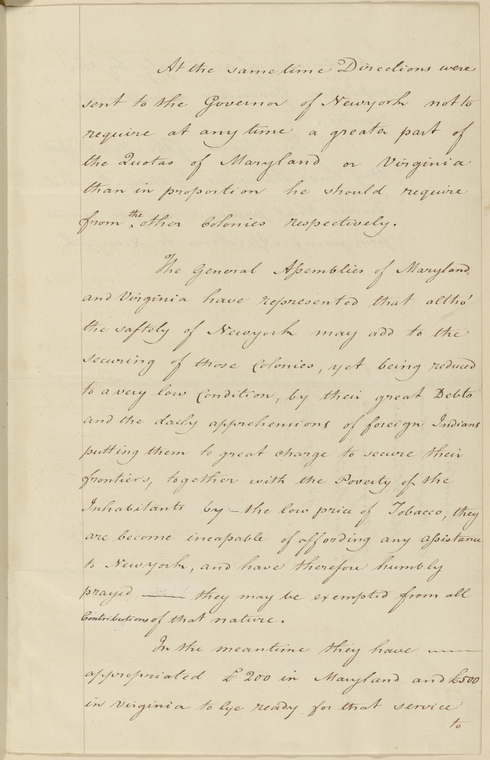 At the same time Directions were
sent to the Governor of Newyork not to
require at any time a greater part of
the Quotas of Maryland or Virginia
than in proportion he should require
from the other Colonies respectively.
The General Assemblies of Maryland
and Virginia have represented that altho'
the saftely of Newyork may add to the
securing of those Colonies, yet being reduced
to a very low Condition, by their great Debts
and the daily apprehensions of foreign Indians
putting them to great charge to secure their
frontiers, together with the Poverty of the
Inhabitants by – the low price of Tobacco, they
are become incapable of affording any assistance
to Newyork, and have therefore humbly
prayed —— they may be exempted from all
Contributions of that nature.
In the meantime they have ——
appropriated £200 in Maryland and £500
in Virginia to lye ready for that service
to